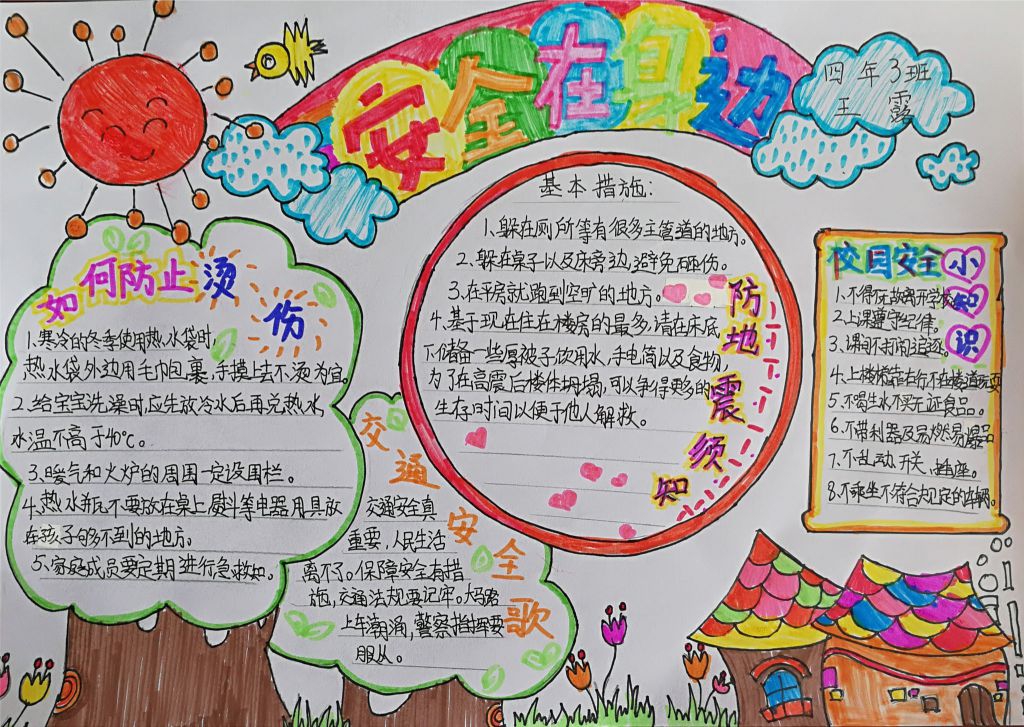 安全在身边
四年3班
王露
如何防止烫伤
1、寒冷的冬季使用热水袋时,
热水袋外边用毛巾包裹,手摸上去不烫为宜。
2、给宝宝洗澡时,应先放冷水后再兑热水,
水温不高于40℃。
3、暖气和火炉的周围一定设围栏。
4、热水瓶不要放在桌上,熨斗等电器用具放
在孩子够不到的地方。
5、家庭成员要定期进行急救知。
交通安全歌
交通安全真
重要,人民生活
离不了。保障安全有措
施,交通法规要记牢。大马路
上车潮涌,警察指挥要
服从。
防地震须知
基本措施:
1、躲在厕所等有很多主管道的地方。
2、躲在桌子以及床旁边,避免砸伤。
3、在平房就跑到空旷的地方。
4、基于现在住在楼房的最多,请在床底
下储备一些厚被子饮用水,手电筒以及食物,
为了在高震后楼体坍塌,可以争得更多的
生存时间以便于他人解救。
校园安全小知识
1、不得无故离开学校。
2、上课遵守纪律。
3、课间不打闹追逐。
4、上楼梯靠右行不在楼道玩耍
5、不喝生水不买无证食品。
6、不带利器及易燃易爆品
7、不乱动开关、插座。
8、不乘坐不符合规定的车辆。